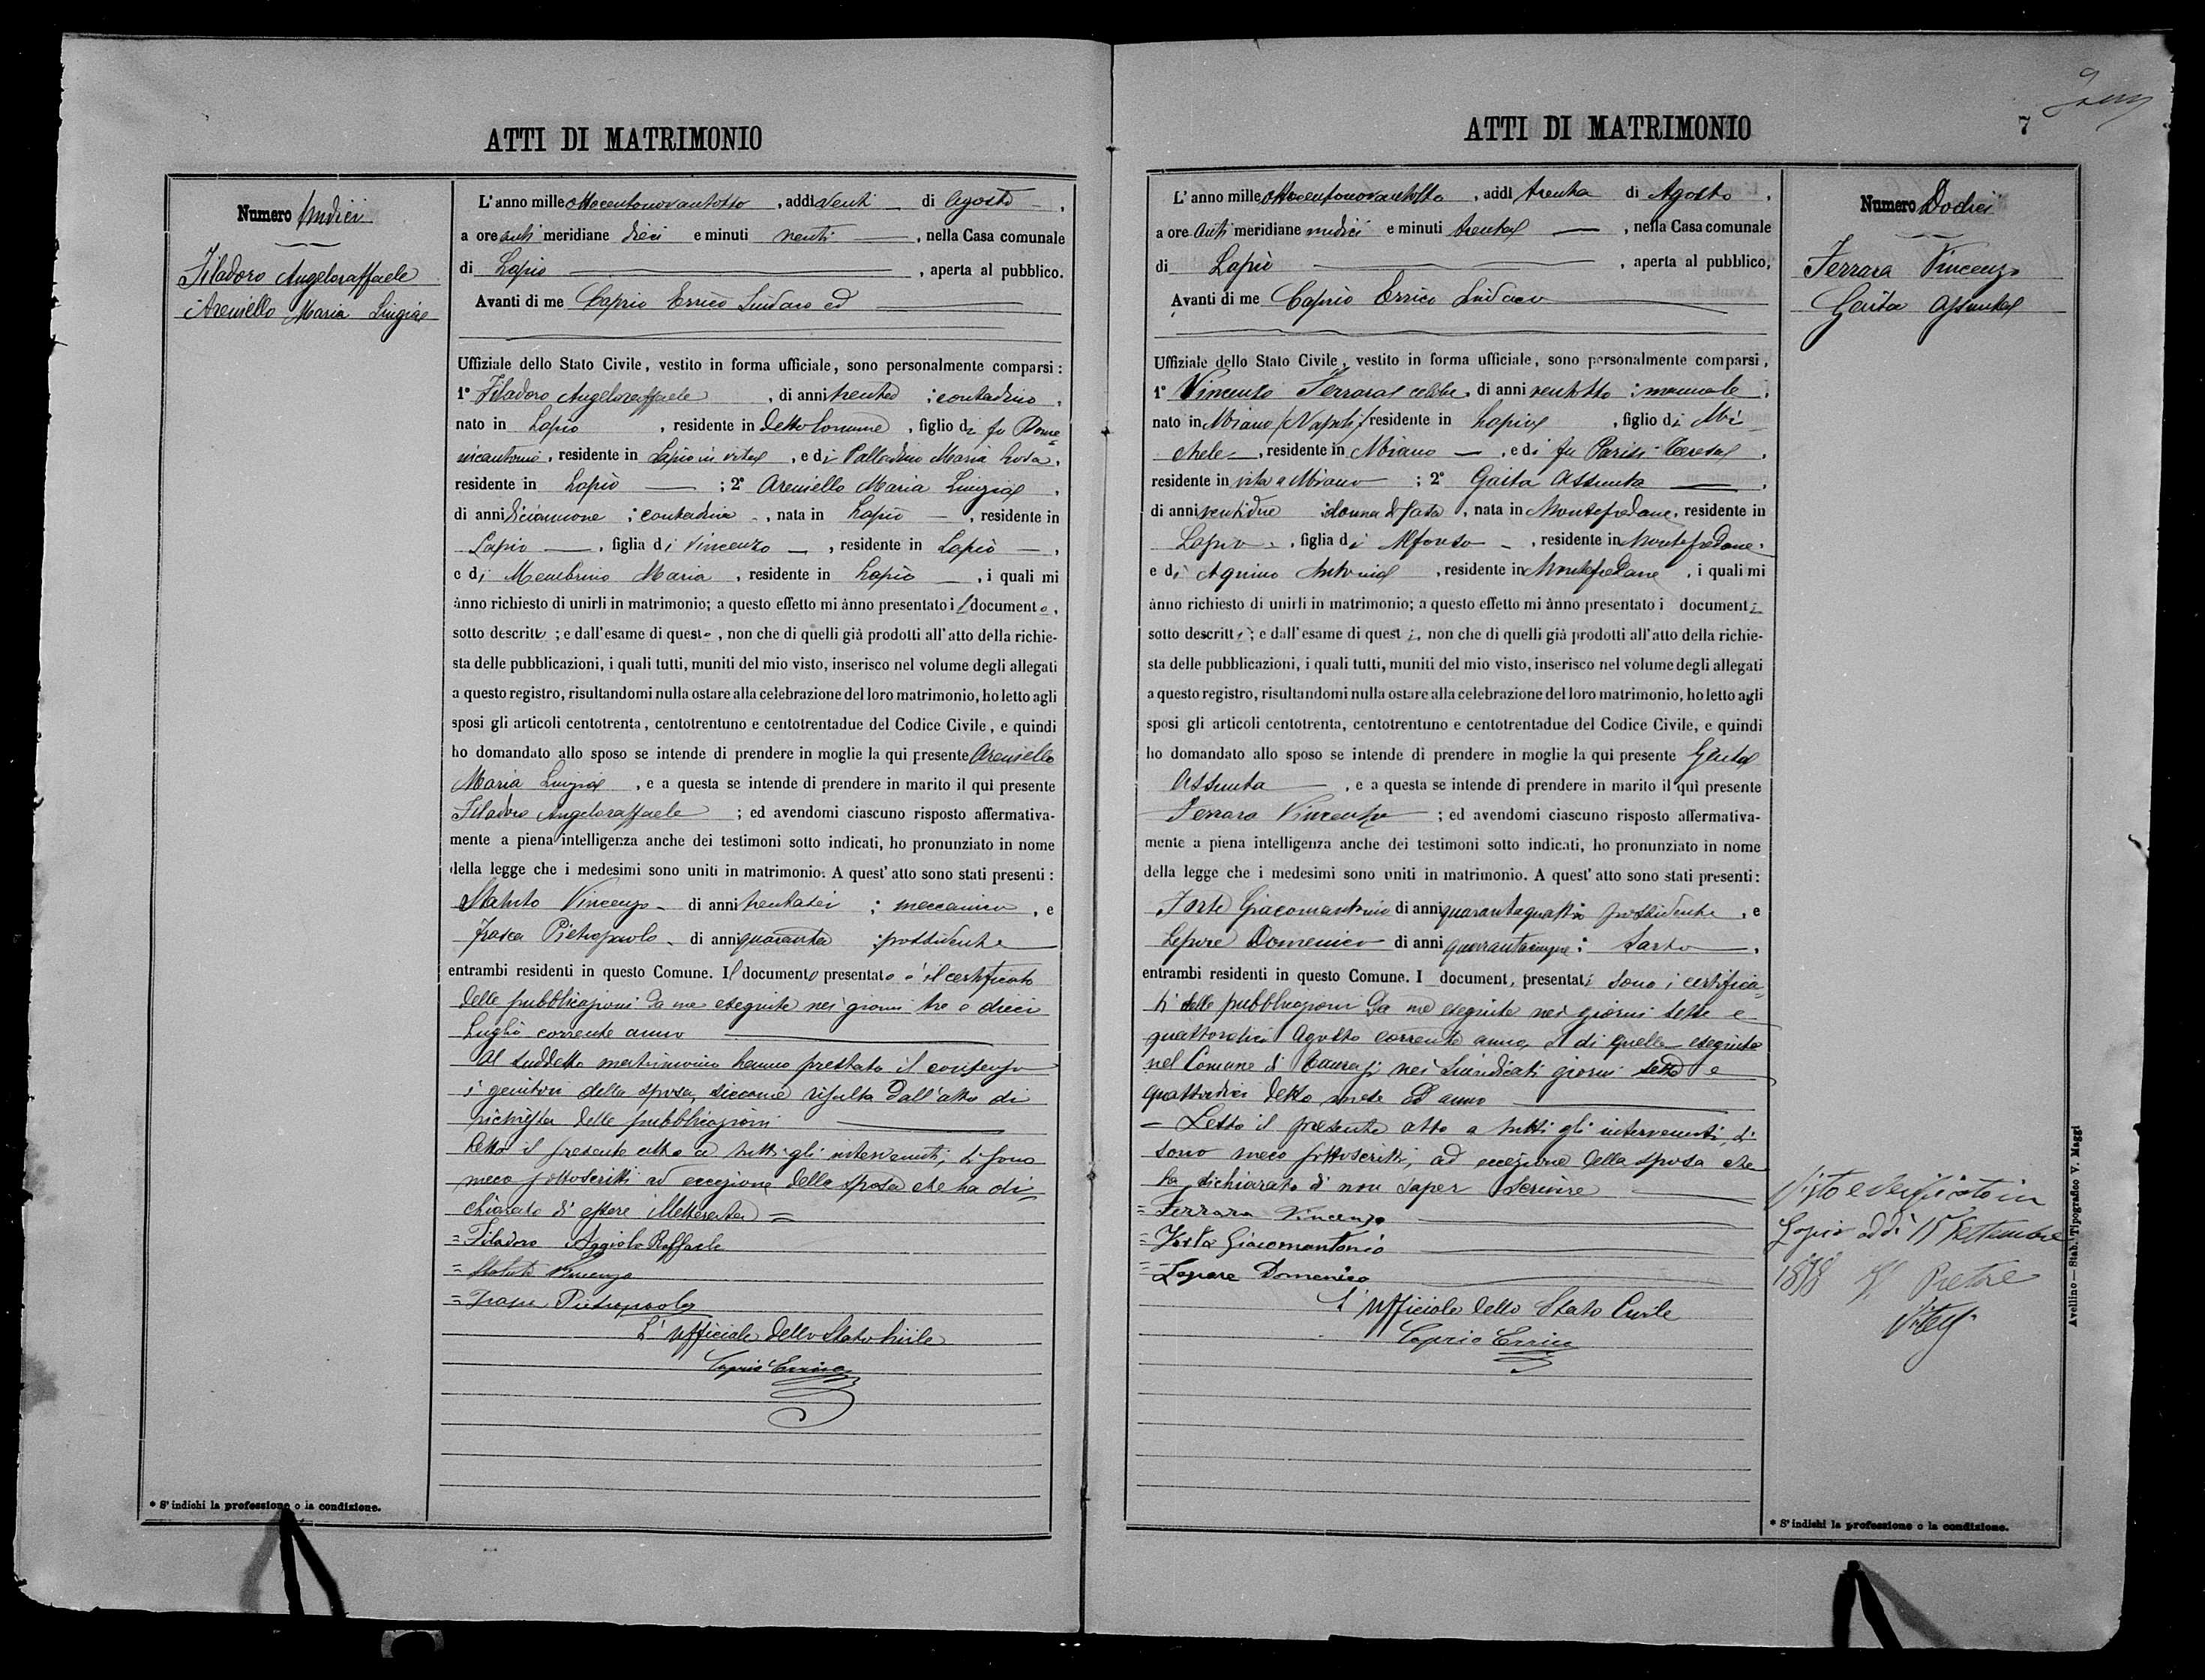 ATTI DI MATRIMONIO
Numero Undici
Filadoro Angeloraffaele
Areniello Maria Luigia
L'anno mille ottocentonovantotto, addì venti di Agosto,
a ore anti meridiane dieci e minuti venti, nella Casa comunale
di Lapio, aperta al pubblico.
Avanti di me Caprio Errico Sindaco ed
Uffiziale dello Stato Civile, vestito in forma ufficiale, sono personalmente comparsi:
1° Filadoro Angeloraffaele, di anni trenta; contadino,
nato in Lapio, residente in detto Comune, figlio di fu Dome
nicantonio, residente in Lapio in vita, e di Palladino Maria Rosa,
residente in Lapio; 2° Areniello Maria Luigia,
di anni diciannove; contadina, nata in Lapio, residente in
Lapio, figlia di Vincenzo, residente in Lapio,
e di Membrino Maria, residente in Lapio, i quali mi
ànno richiesto di unirli in matrimonio; a questo effetto mi ànno presentato il documento,
sotto descritto; e dall'esame di questo, non che di quelli già prodotti all'atto della richie-
sta delle pubblicazioni, i quali tutti, muniti del mio visto, inserisco nel volume degli allegati
a questo registro, risultandomi nulla ostare alla celebrazione del loro matrimonio, ho letto agli
sposi gli articoli centotrenta, centotrentuno e centotrentadue del Codice Civile, e quindi
ho domandato allo sposo se intende di prendere in moglie la qui presente Areniello
Maria Luigia, e a questa se intende di prendere in marito il qui presente
Filadoro Angeloraffaele; ed avendomi ciascuno risposto affermativa-
mente a piena intelligenza anche dei testimoni sotto indicati, ho pronunziato in nome
della legge che i medesimi sono uniti in matrimonio. A quest'atto sono stati presenti:
Statuto Vincenzo di anni trentasei; meccanico, e
Frasca Pietropaolo di anni quaranta; possidente
entrambi residenti in questo Comune. Il documento presentato è il certificato
delle pubblicazioni da me eseguite nei giorni tre e dieci
Luglio corrente anno
Al suddetto matrimonio hanno prestato il consenso
i genitori della sposa, siccome risulta dall'atto di
richiesta delle pubblicazioni
Letto il presente atto a tutti gli intervenuti, si sono
meco sottoscritti ad eccezione della sposa che ha di
chiarato di essere illetterata =
= Filadoro Aggiolo Raffaele
= Statuto Vincenzo
= Frasca Pietropaolo
L'Ufficiale dello Stato Civile
Caprio Errico
* S'indichi la professione o la condizione.
ATTI DI MATRIMONIO
7
L'anno mille ottocentonovantotto, addì trenta di Agosto,
a ore anti meridiane undici e minuti trenta, nella Casa comunale
di Lapio, aperta al pubblico,
Avanti di me Caprio Errico Sindaco
Uffiziale dello Stato Civile, vestito in forma ufficiale, sono personalmente comparsi,
1° Vincenzo Ferrara celibe, di anni ventotto; manuale,
nato in Miano (Napoli) residente in Lapio, figlio di Mi
chele, residente in Miano, e di fu Parisi Teresa,
residente in vita a Miano; 2° Gaita Assunta,
di anni ventidue; donna di casa, nata in Montefredane, residente in
Lapio, figlia di Alfonso, residente in Montefredane,
e di Aquino Antonia, residente in Montefredane, i quali mi
ànno richiesto di unirli in matrimonio; a questo effetto mi ànno presentato i documenti
sotto descritti; e dall'esame di questi, non che di quelli già prodotti all'atto della richie-
sta delle pubblicazioni, i quali tutti, muniti del mio visto, inserisco nel volume degli allegati
a questo registro, risultandomi nulla ostare alla celebrazione del loro matrimonio, ho letto agli
sposi gli articoli centotrenta, centotrentuno e centotrentadue del Codice Civile, e quindi
ho domandato allo sposo se intende di prendere in moglie la qui presente Gaita
Assunta, e a questa se intende di prendere in marito il qui presente
Ferrara Vincenzo; ed avendomi ciascuno risposto affermativa-
mente a piena intelligenza anche dei testimoni sotto indicati, ho pronunziato in nome
della legge che i medesimi sono uniti in matrimonio. A quest'atto sono stati presenti:
Forte Giacomantonio di anni quarantaquattro possidente, e
Lepore Domenico di anni quarantacinque; sarto,
entrambi residenti in questo Comune. I documenti presentati sono i certifica
ti delle pubblicazioni da me eseguite nei giorni sette e
quattordici Agosto corrente anno, e di quelle eseguite
nel Comune di Taurasi nei suindicati giorni sette e
quattordici detto mese ed anno
- Letto il presente atto a tutti gli intervenuti, si
sono meco sottoscritti, ad eccezione della sposa che
ha dichiarato di non saper scrivere
= Ferrara Vincenzo
= Forte Giacomantonio
= Lepore Domenico
L'Ufficiale dello Stato Civile
Caprio Errico
Numero Dodici
Ferrara Vincenzo
Gaita Assunta
Visto e verificato in
Lapio addì 15 Settembre
1898 Il Pretore
Avellino — Stab. Tipografico V. Maggi
* S'indichi la professione o la condizione.